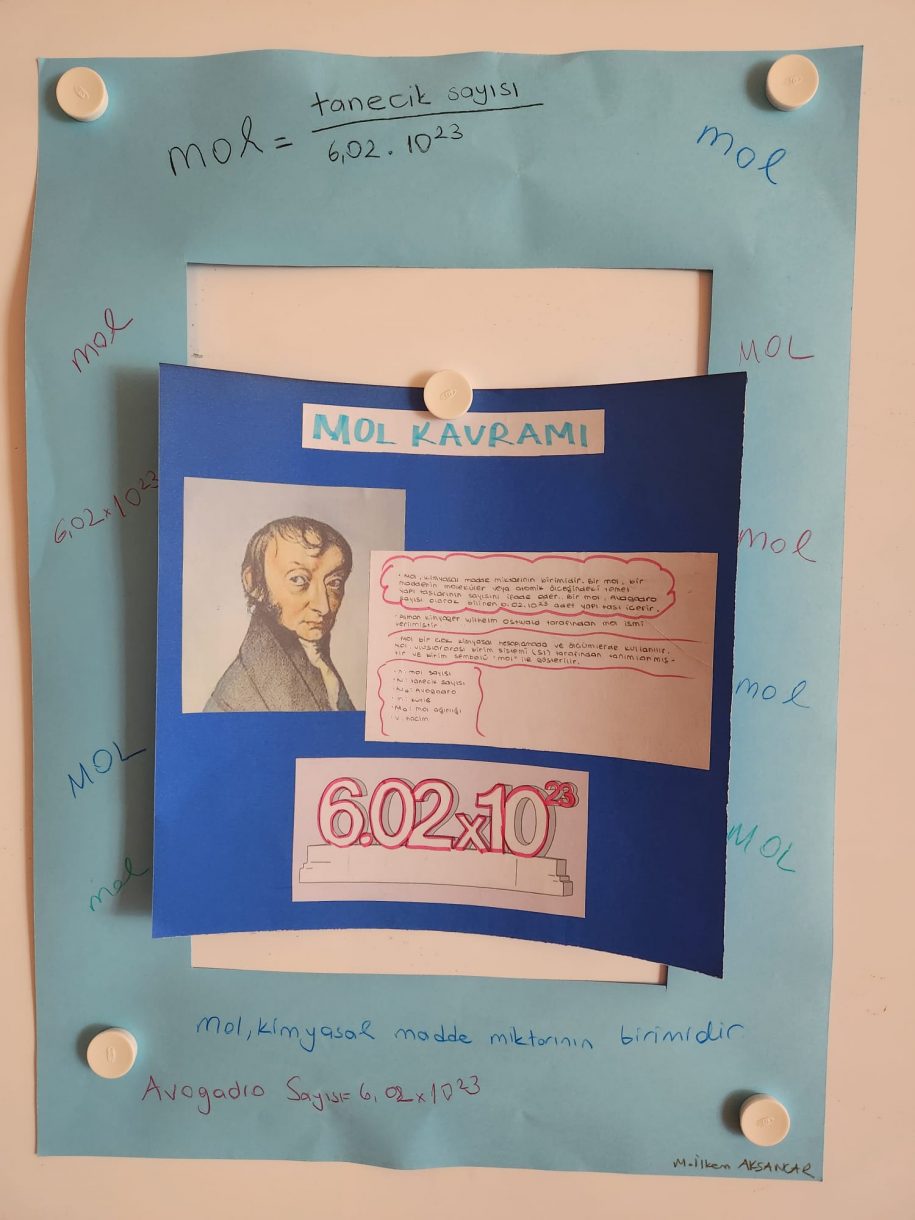 tanecik sayısı
mol =
6,02 . 10²³
mol
mol
MOL
6,02×10²³
mol
MOL
mol
mol
MOL
MOL KAVRAMI
• Mol, kimyasal madde miktarının birimidir. Bir mol, bir
maddenin moleküler veya atomik ölçeğindeki temel
yapı taşlarının sayısını ifade eder. Bir mol, Avogadro
sayısı olarak bilinen 6.02.10²³ adet yapı taşı içerir.
• Alman kimyager Wilhelm Ostwald tarafından mol ismi
verilmiştir.
• Mol bir çok kimyasal hesaplamada ve ölçümlerde kullanılır.
Mol, uluslararası birim sistemi (SI) tarafından tanımlanmış-
tır ve birim sembolü "mol" ile gösterilir.
• n: mol sayısı
• N: tanecik sayısı
• Nₐ: Avogadro
• m: kütle
• Ma: mol ağırlığı
• V: hacim
6.02x10²³
Mol, kimyasal madde miktarının birimidir.
Avogadro Sayısı= 6,02×10²³
M.İlken AKSANCAR